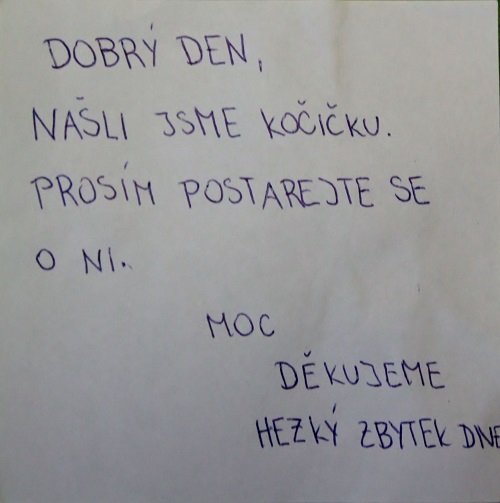 DOBRÝ DEN,
NAŠLI JSME KOČIČKU.
PROSÍM POSTAREJTE SE
O NI.
MOC
DĚKUJEME
HEZKÝ ZBYTEK DNE